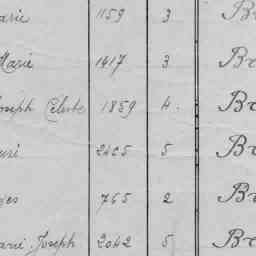 arie 1159 3 Br
Marie 1417 3 Br
Joseph Celeste 1859 4. Br
2425 5 Br
ges 765 2 Br
arie Joseph 2042 5 Br